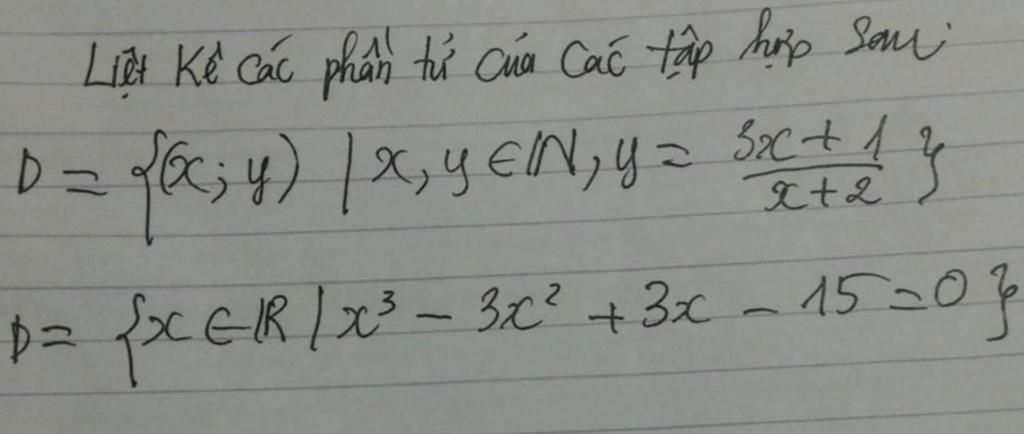 Liệt kê các phần tử của các tập hợp sau:
D = {(x; y) | x, y ∈ ℕ, y = (3x + 1)/(x + 2)}
D = {x ∈ ℝ | x³ − 3x² + 3x − 15 = 0}